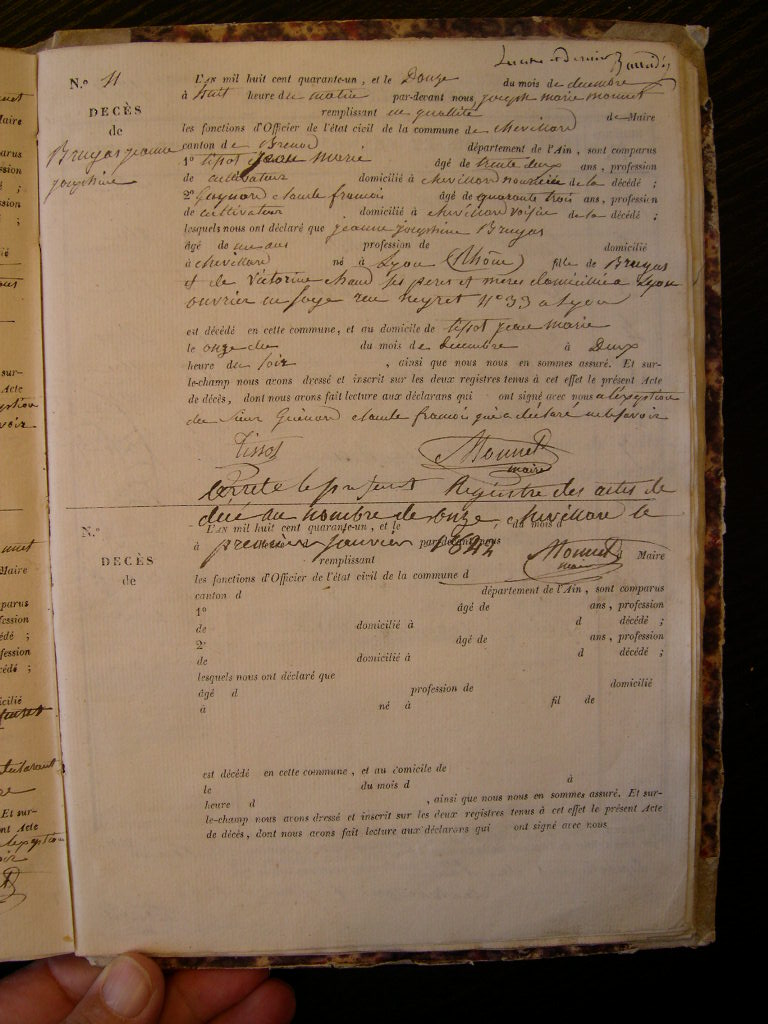 N.º 11
L'AN mil huit cent quarante-un, et le Douze du mois de decembre
à huit heure du matin par-devant nous joseph marie monnet
DÉCÈS
remplissant en qualité de Maire
de
les fonctions d'Officier de l'état civil de la commune de chevillard
Bruyas jeanne
josephine
canton de Brenod département de l'Ain, sont comparus
1º tissot jean marie âgé de trente deux ans, profession
de cultivateur domicilié à chevillard de la décédé ;
2º claude francois âgé de quarante trois ans, profession
de cultivateur domicilié à chevillard voisin de la décédé ;
lesquels nous ont déclaré que jeanne josephine Bruyas
âgé de un ans profession de domicilié
à chevillard né à Lyon (Rhône) fille de Bruyas
et de victorine chaud ses peres et meres domicilié a Lyon
ouvrier en soye rue neyret nº 33 a Lyon
est décédé en cette commune, et au domicile de tissot jean marie
le onze du mois de decembre à Deux
heure du soir, ainsi que nous nous en sommes assuré. Et sur-
le-champ nous avons dressé et inscrit sur les deux registres tenus à cet effet le présent Acte
de décès, dont nous avons fait lecture aux déclarans qui ont signé avec nous a l'exeption
du sieur claude francois qui a déclaré ne le savoir
Tissot Monnet
maire
Arrete le present Registre des actes de
décé au nombre de onze, chevillard le
premier janvier 1842 Monnet
maire
N.º
L'AN mil huit cent quarante-un, et le du mois d
à par-devant nous
DÉCÈS
remplissant d Maire
de
les fonctions d'Officier de l'état civil de la commune d
canton d département de l'Ain, sont comparus
1º âgé de ans, profession
de domicilié à d décédé ;
2º âgé de ans, profession
de domicilié à d décédé ;
lesquels nous ont déclaré que
âgé d profession de domicilié
à né à fil de
est décédé en cette commune, et au domicile de
le du mois d à
heure d , ainsi que nous nous en sommes assuré. Et sur-
le-champ nous avons dressé et inscrit sur les deux registres tenus à cet effet le présent Acte
de décès, dont nous avons fait lecture aux déclarans qui ont signé avec nous